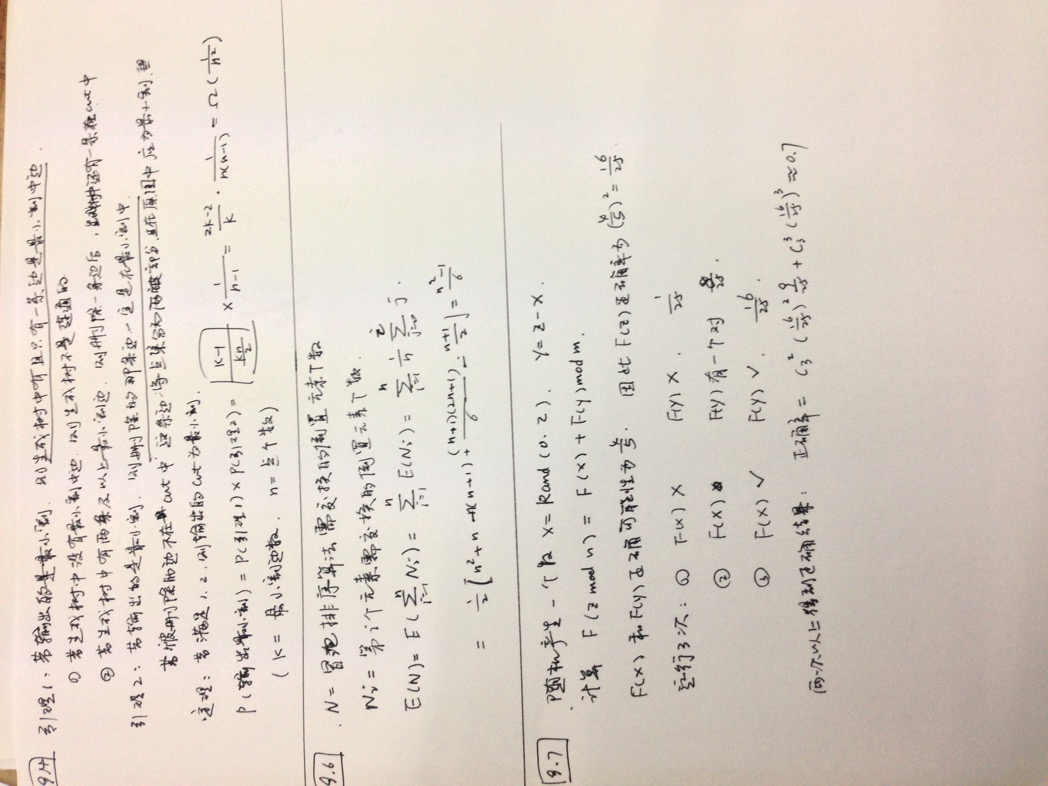 9.4 引理1: 若输出的是最小割. 则生成树中有且只有一条边是最小割中边.
① 若生成树中没有最小割中边. 则生成树不是连通的
② 若生成树中有两条及以上最小割边. 则删除一条边后, 中还有一条在cut中
引理2: 若输出的是最小割. 则删除的那条边一定是在最小割中.
若被删除的边不在cut中 这条边 将点集分为两部分. 且在原图中应为最小割.
定理: 若满足1.2. 则输出的cut为最小割.
P(输出最小割) = P(引理1) × P(引理2) = k-1 / kn/2 × 1/n-1 = 2k-2/k · 1/n(n-1) = Ω(1/n²)
(k = 最小割边数. n = 点个数)
9.6 N = 冒泡排序算法需交换的倒置元素个数
Ni = 第i个元素需交换的倒置元素个数.
E(N) = E(∑Ni) = ∑ E(Ni) = ∑ 1/n ∑ j.
= 1/2 [n²+n -n(n+1) + (n+1)(2n+1)/6 - n+1/2] = n²-1/6
9.7 随机产生一个数 X = Rand(0, z). Y = z - x.
计算 F(z mod n) = F(x) + F(y) mod m.
F(x) 和 F(y) 正确可能性为 4/5. 因此 F(z) 正确率为 (4/5)² = 16/25.
运行3次: ① F(x) × F(y) × 1/25
② F(x) F(y) 有一个对 8/25.
③ F(x) ✓ F(y) ✓ 16/25.
两次以上得到正确结果: 正确率 = C₃² (16/25)² 9/25 + C₃³ (16/25)³ ≈ 0.7